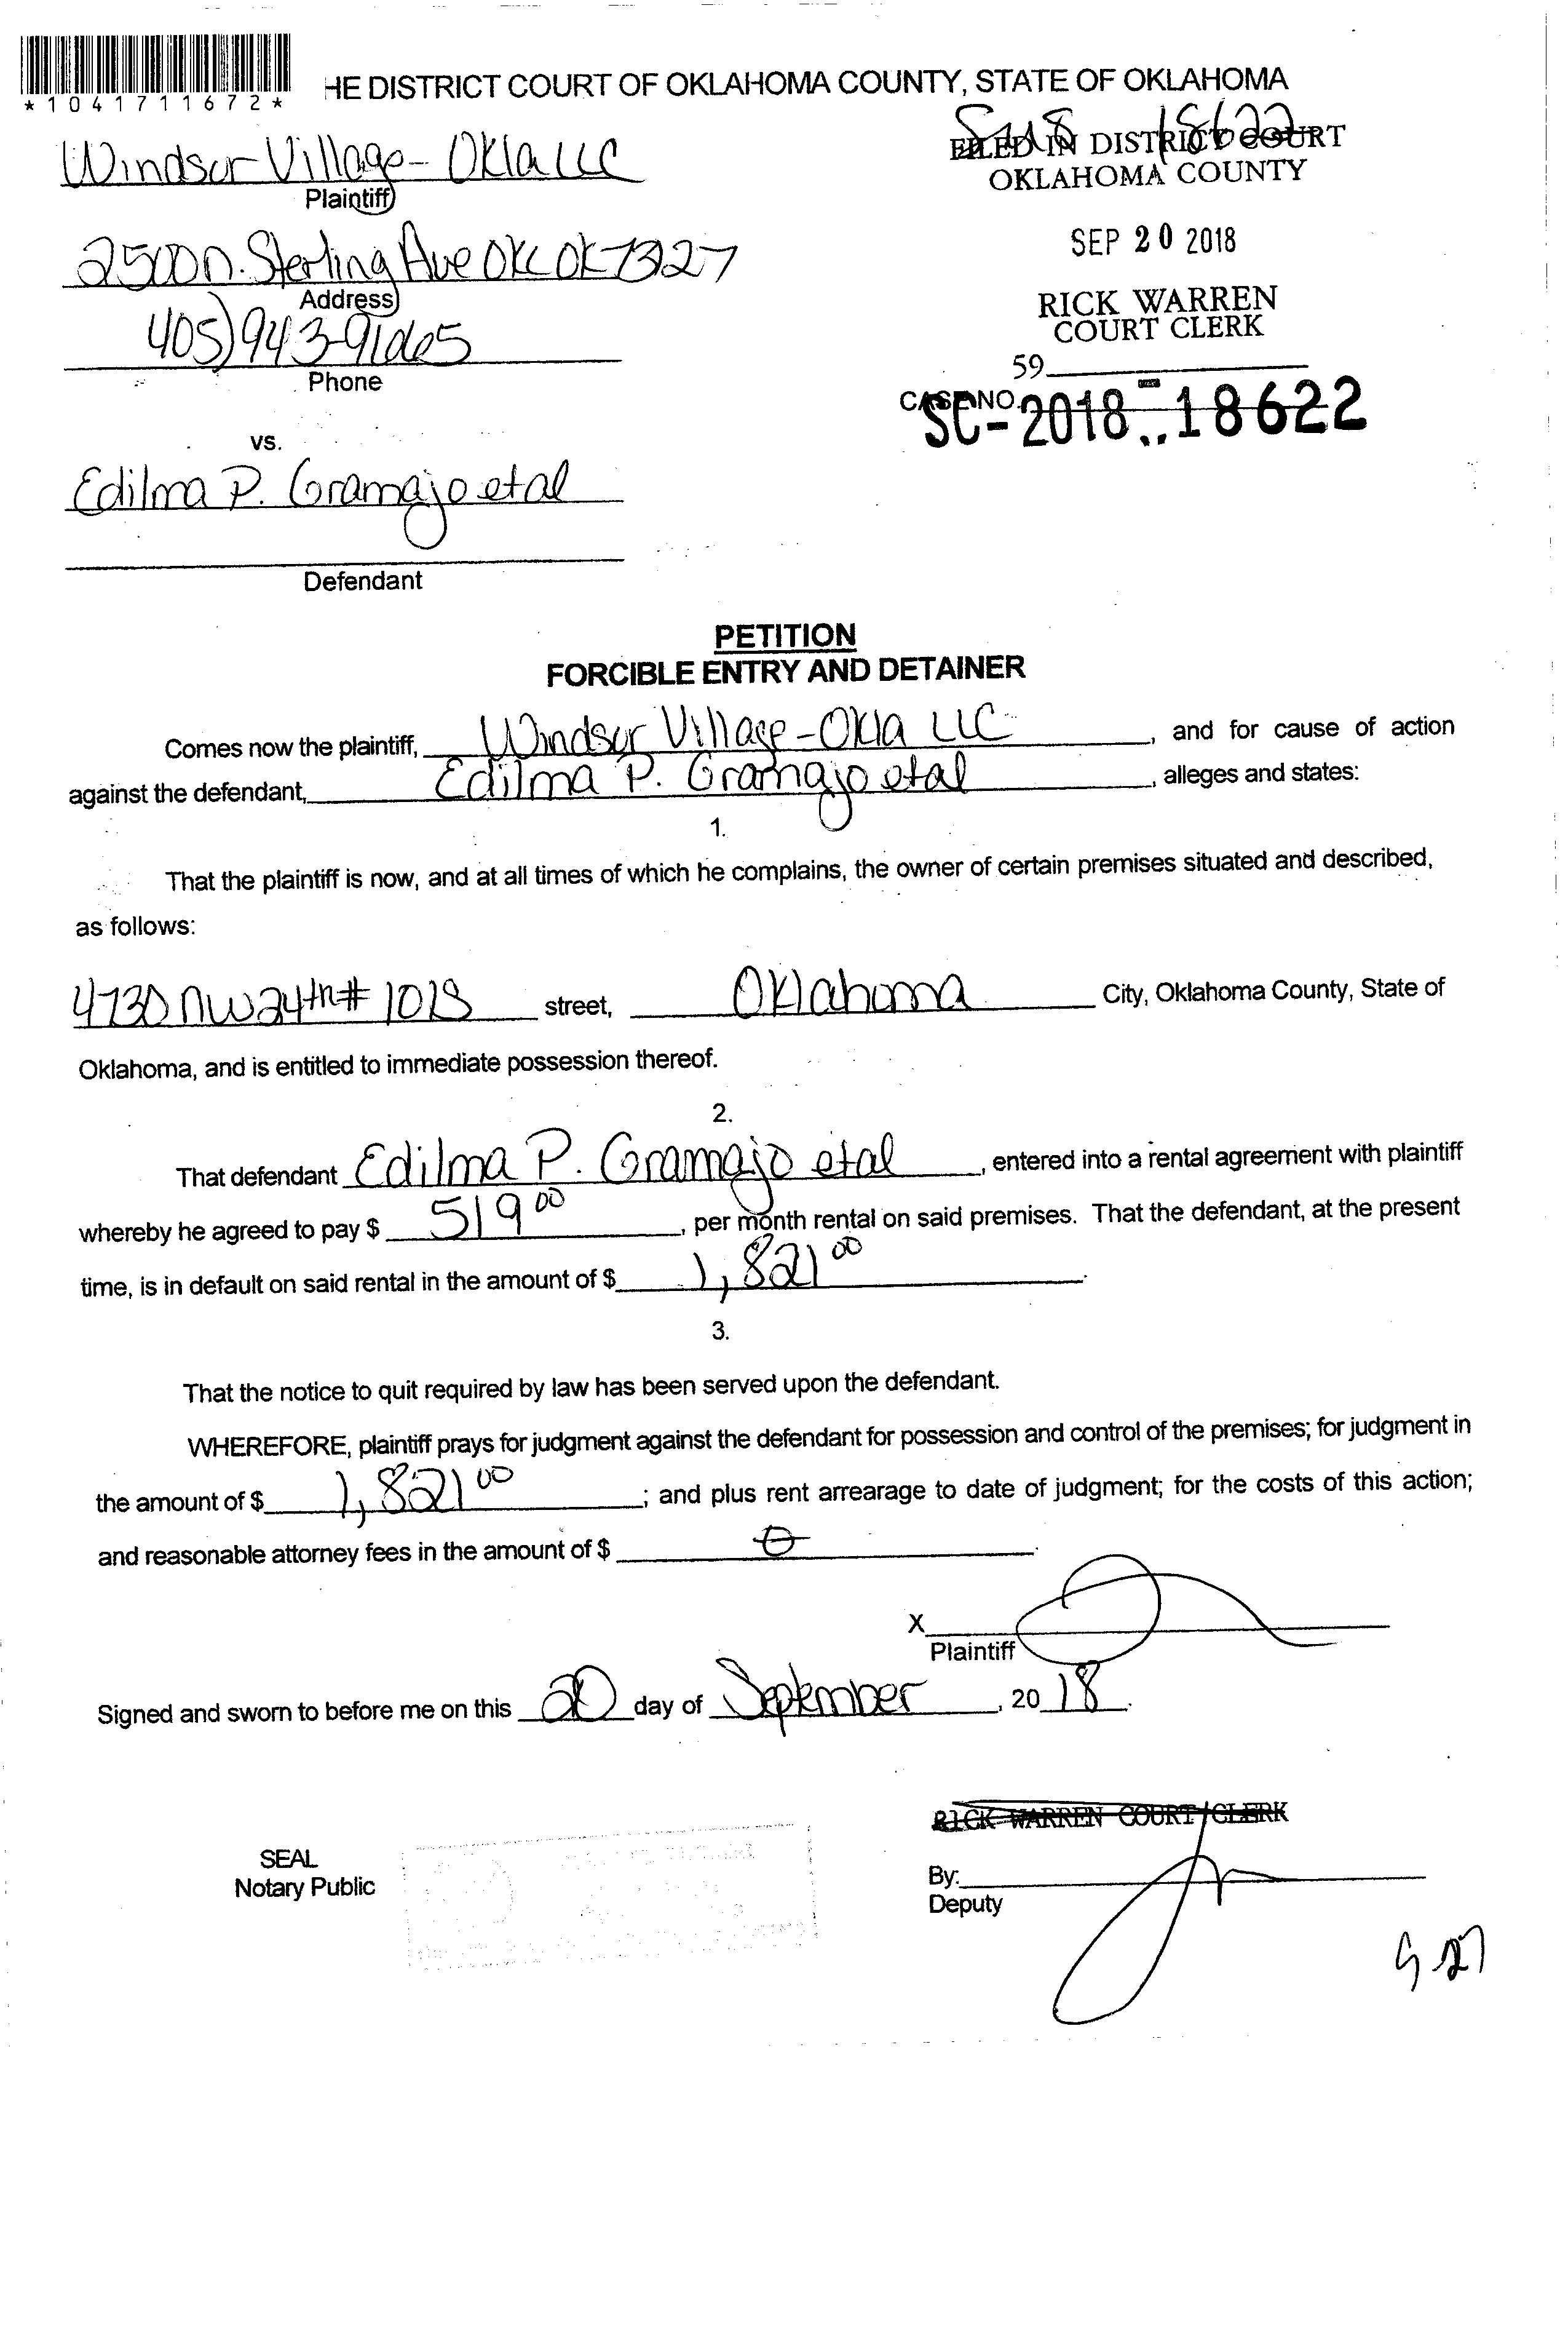 *1041711672*
HE DISTRICT COURT OF OKLAHOMA COUNTY, STATE OF OKLAHOMA
18622
FILED IN DISTRICT COURT
OKLAHOMA COUNTY
Windsor Village - Okla LLC
Plaintiff
SEP 20 2018
2500 N. Sterling Ave OKC OK 73127
Address
RICK WARREN
COURT CLERK
405) 943-9165
Phone
59
CASE NO.
SC-2018-18622
vs.
Edilma P. Gramajo etal
Defendant
PETITION
FORCIBLE ENTRY AND DETAINER
Comes now the plaintiff, Windsor Village - Okla LLC, and for cause of action
against the defendant, Edilma P. Gramajo etal, alleges and states:
1.
That the plaintiff is now, and at all times of which he complains, the owner of certain premises situated and described,
as follows:
4730 NW 24th # street, Oklahoma City, Oklahoma County, State of
Oklahoma, and is entitled to immediate possession thereof.
2.
That defendant Edilma P. Gramajo etal, entered into a rental agreement with plaintiff
whereby he agreed to pay $ 519 00, per month rental on said premises. That the defendant, at the present
time, is in default on said rental in the amount of $ 1,821 00.
3.
That the notice to quit required by law has been served upon the defendant.
WHEREFORE, plaintiff prays for judgment against the defendant for possession and control of the premises; for judgment in
the amount of $ 1,821 00; and plus rent arrearage to date of judgment; for the costs of this action;
and reasonable attorney fees in the amount of $ 0.
X
Plaintiff
Signed and sworn to before me on this 20 day of September, 2018.
RICK WARREN COURT CLERK
SEAL
Notary Public
By:
Deputy
9 27